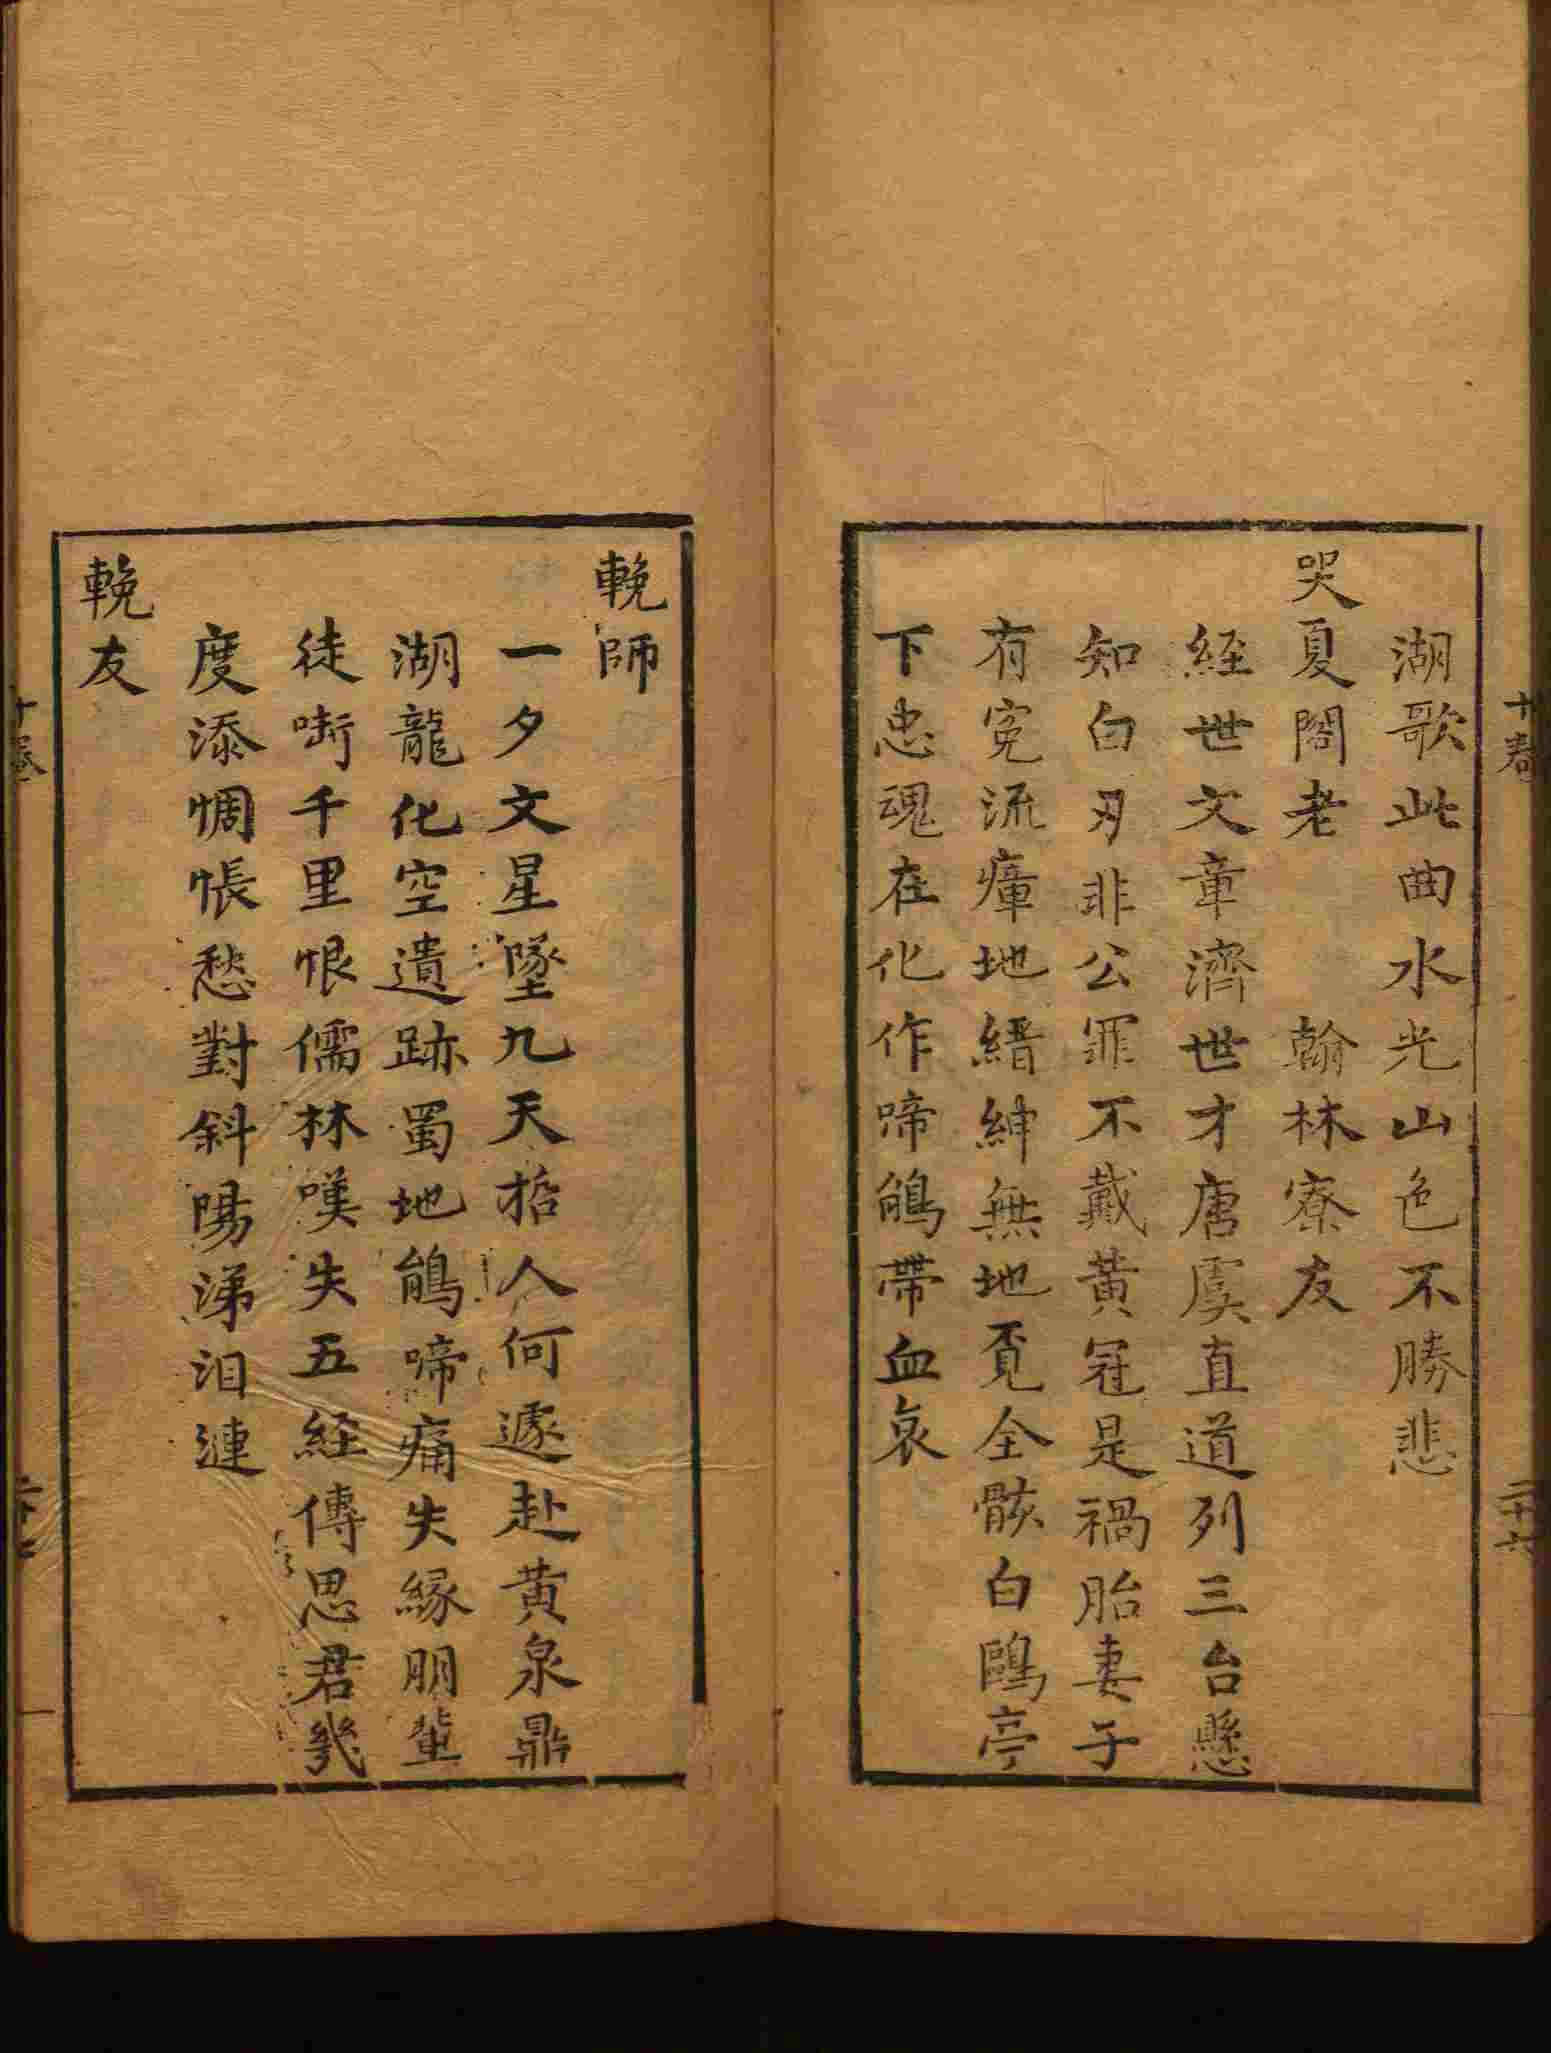 湖歌此曲水光山色不勝悲
哭夏閣老 翰林寮友
経世文章濟世才唐虞直道列三台懸
知白刃非公罪不戴黃冠是禍胎妻子
有寃流瘴地縉紳無地覔全骸白鷗亭
下忠魂在化作啼鵑帶血哀
十卷
二十六
輓師
一夕文星墜九天哲人何遽赴黃泉鼎
湖龍化空遺跡蜀地鵑啼痛失緣朋輩
徒嘶千里恨儒林嘆失五経傳思君幾
度添惆悵愁對斜陽涕泪漣
輓友
十卷